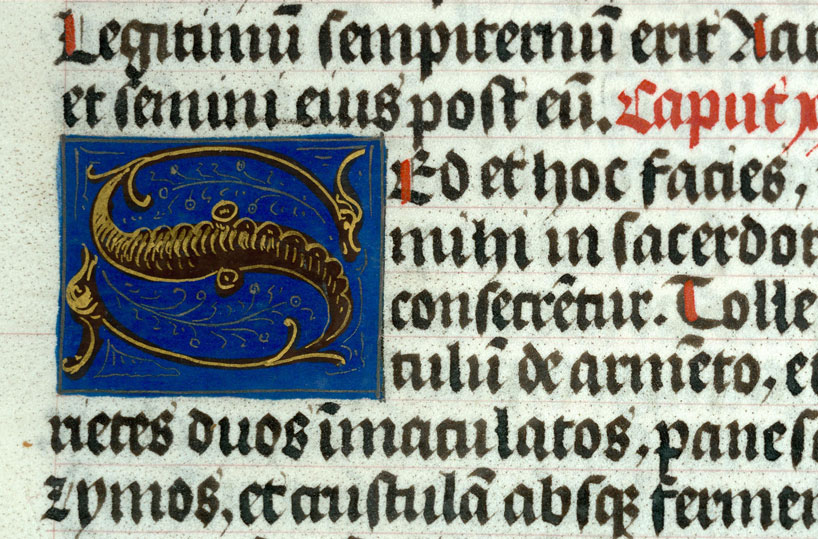 Legitimū sempiternū erit Aar
et semini eius post eū. Caput x
SEd et hoc facies,
mihi in sacerdot
consecrētur. Tolle
tulū de armēto, et
rietes duos īmaculatos, panes
zymos, et crustulā absqꝫ fermen